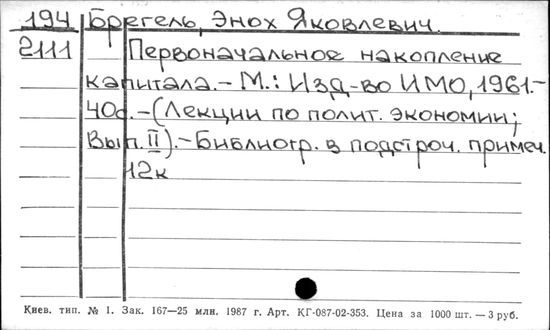 194 Брегель, Энох Яковлевич.
2111 Первоначальное накопление
капитала.- М.: Изд-во ИМО, 1961.-
40с.-(Лекции по полит. экономии;
Вып. II).-Библиогр. в подстроч. примеч.
12к
Киев. тип. № 1. Зак. 167—25 млн. 1987 г. Арт. КГ-087-02-353. Цена за 1000 шт. — 3 руб.